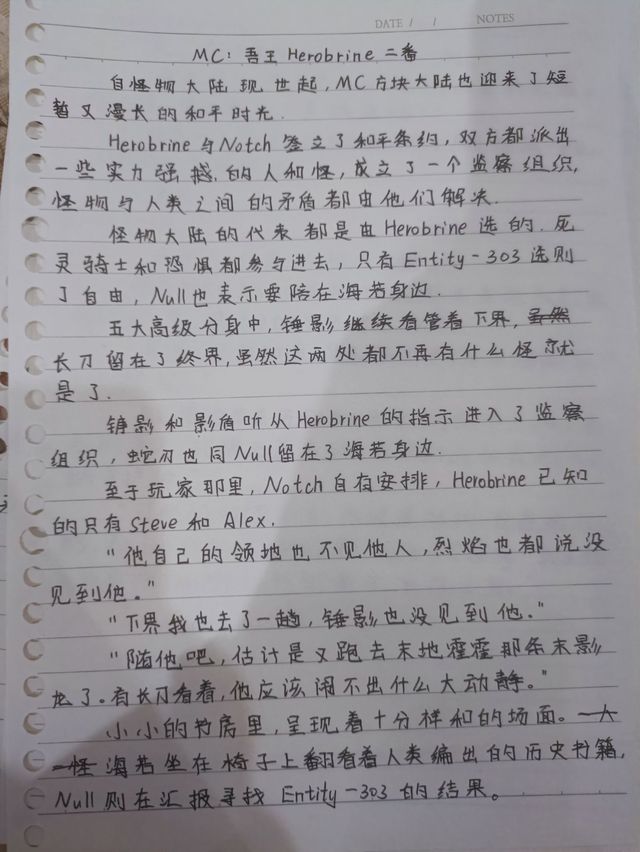 DATE / / NOTES
MC：吾王 Herobrine 二番
自怪物大陆现世起，MC方块大陆也迎来了短
暂又漫长的和平时光．
Herobrine与Notch签立了和平条约，双方都派出
一些实力强撼的人和怪，成立了一个监察组织，
怪物与人类之间的矛盾都由他们解决．
怪物大陆的代表都是由Herobrine选的．死
灵骑士和恐惧都参与进去，只有Entity-303选则
了自由，Null也表示要陪在海若身边．
五大高级分身中，锤影继续看管着下界，虽然
长刀留在了终界，虽然这两处都不再有什么怪就
是了．
锋影和影盾听从Herobrine的指示进入了监察
组织，蛇刃也同Null留在了海若身边．
至于玩家那里，Notch自有安排，Herobrine已知
的只有Steve和Alex．
"他自己的领地也不见他人，烈焰也都说没
见到他。"
"下界我也去了一趟，锤影也没见到他。"
"随他吧，估计是又跑去末地霍霍那条末影
龙了。有长刀看着，他应该闹不出什么大动静。"
小小的书房里，呈现着十分样和的场面。一人
一怪海若坐在椅子上翻看着人类编出的历史书籍，
Null则在汇报寻找Entity-303的结果。